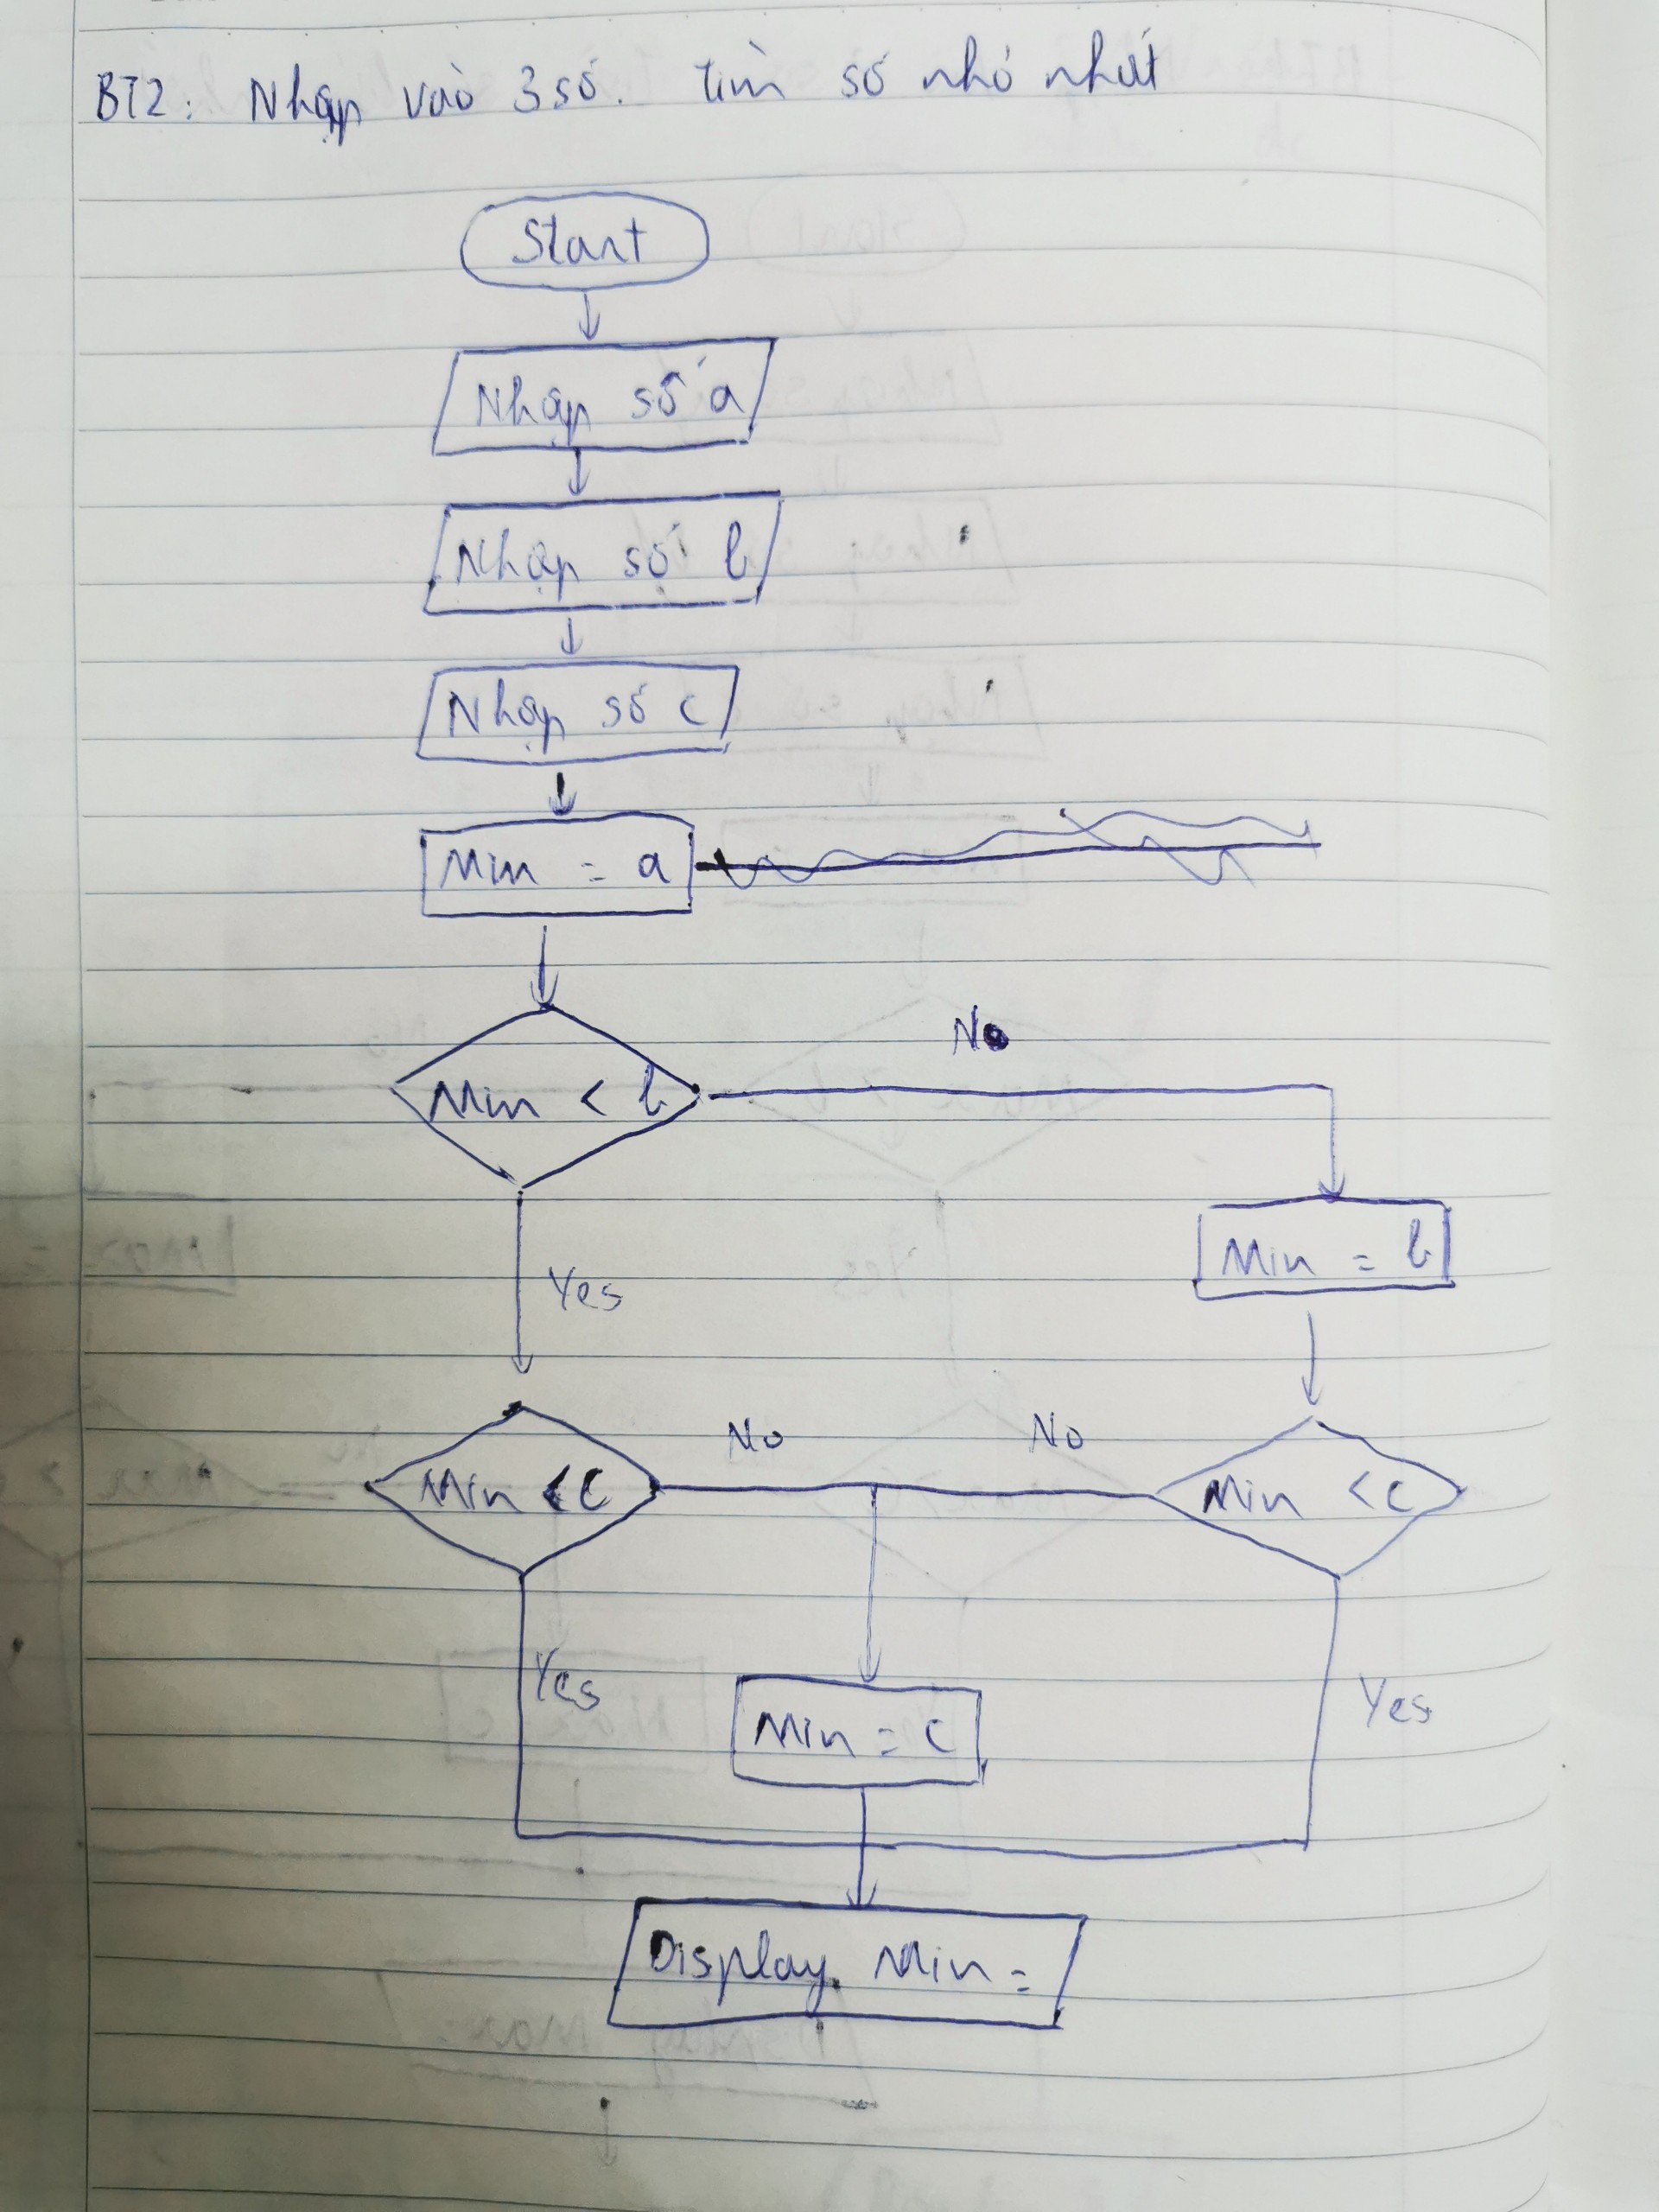 BT2: Nhập vào 3 số. Tìm số nhỏ nhất
Start
Nhập số a
Nhập số b
Nhập số c
Min = a
Min < b
No
Min = b
Yes
Min < c
No
No
Min < c
Yes
Min = c
Yes
Display Min =